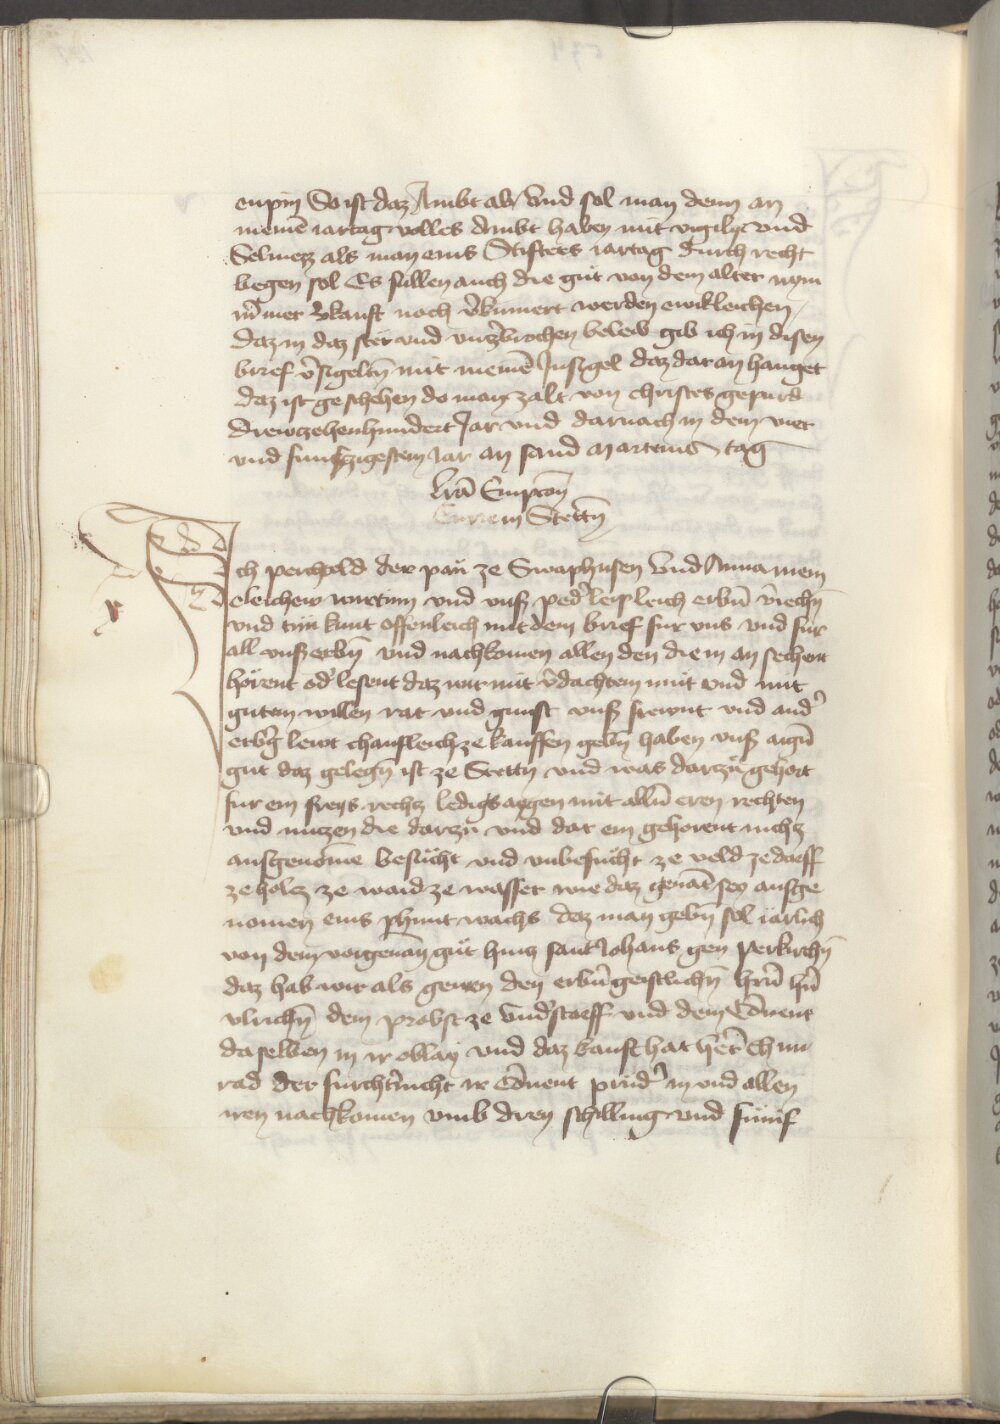 enpin So ist daz Ambt ab / Vnd sol man denn an
meinē iartag volles Ambt haben mit vigily vnd
Selmezz als man eins Stifters iartag durch recht
begen sol Es süllen auch die gůt von dem alter nym
m̄ mer v̄kauft noch v̄kumert werden ewikleichen /
daz in daz stet vnd vnzˀbrochen beleib gib ich in disen
brief v̄sigeltn̄ mit meinē Insigel daz dar an hanget
daz ist geschehen do man zalt von christes gepurd
drewzehenhundert Jar vnd darnach in dem vier
vnd funfzigestem Jar an sand Marteins tag
Lrā Empcōn̄
in Stettn̄
Ich perchtold der paur̄ ze Swaphusen Vnd Anna mein
eleichew wirttinn vnd vnsˀ pedˀ leipleich erbn̄ v̄iechn̄
vnd tůn kunt offenleich mit dem brief fur vns vnd fur
all vnsˀ erbn̄ vnd nachkomen allen den die in an sechent
hörent odˀ lesent daz wir mit v̄dachtem můt vnd mit
gutem willen rat vnd gunst vnsˀ frewnt vnd andˀ
erbˀg lewt chaufleich ze kauffen gebn̄ haben vnsˀ aign̄
gut daz gelegn̄ ist ze Stettn vnd was darzů gehört
fur ein freys rechtz ledigs aygen mit alln̄ eren rechten
vnd nutzen die darzů vnd dar ein gehorent nichtz
ausgenōme besůcht vnd vnbesůcht ze veld ze dorff
ze holtz ze waid ze wasser wie daz genāt sey ausge
nomen eins phunt wachs daz man gebn̄ sol iärlich
von dem vorgenan̄ gůt hintz sant Johans gen Perkirchn̄
daz hab wir als geben den erbn̄ geistlichn̄ hrn̄ hn̄
vlrichn̄ dem Probst ze Vndˀstorff vnd dem Cōuent
daselben in ir oblay vnd daz kauft hat hˀrˀ Chun
rad der furchtˀnicht ir Cōuent průdˀ in vnd allen
iren nachkomen vmb drey schilling vnd fünf